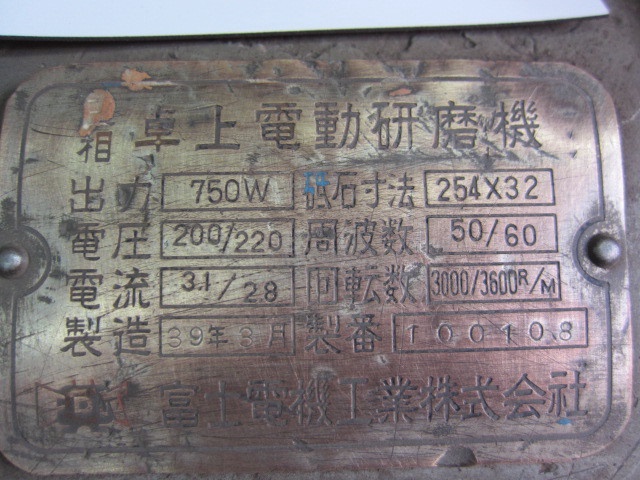 相 卓上電動研磨機
出力 750W 砥石寸法 254X32
電圧 200/220 周波数 50/60
電流 3.1/28 回転数 3000/3600R/M
製造 39年3月 製番 100108
富士電機工業株式会社